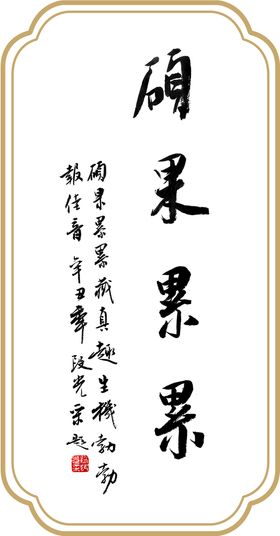 硕果累累
硕果累累藏真趣生機勃勃
報佳音辛丑年段光荣題